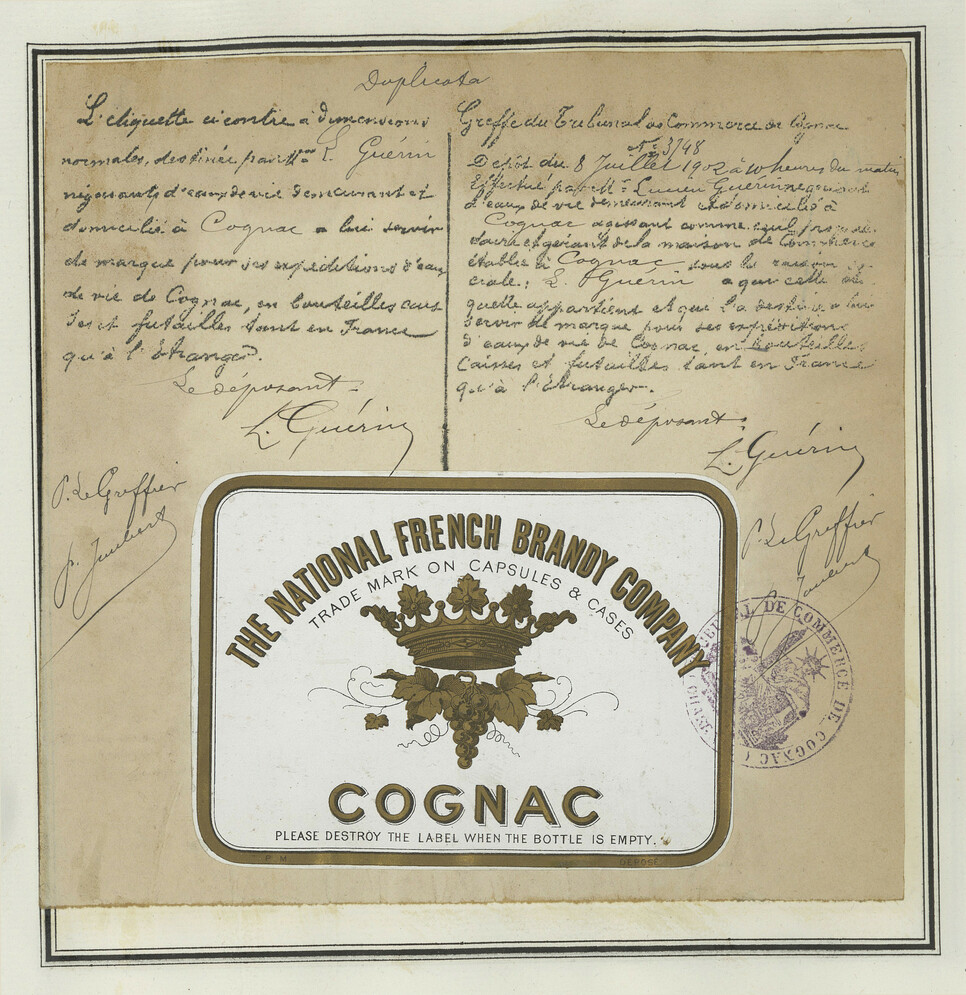 Duplicata
L'étiquette ci contre à dimensions
normales, destinée par Mr L. Guérin
négociants d'eaux de vie demeurant et
domicilié à Cognac a lui servir
de marque pour ses expéditions d'eaux
de vie de Cognac, en bouteilles cais
ses et futailles tant en France
qu'à l'étranger.
Le déposant
L. Guérin
P. Le Greffier
Greffe du Tribunal de Commerce de Cognac
No 3748
Dépôt du 8 Juillet 1902 à 10 heures du matin
Effectué par Mr Lucien Guérin négociant
d'eaux de vie demeurant et domicilié à
Cognac agissant comme seul proprié
taire et gérant de la maison de Commerce
établie à Cognac sous la raison so
ciale: L. Guérin a qui cette éti
quette appartient et qui l'a destinée a lui
servir de marque pour ses expéditions
d'eaux de vie de Cognac, en bouteilles
Caisses et futailles tant en France
qu'à l'étranger.
Le déposant
L. Guérin
P. Le Greffier
THE NATIONAL FRENCH BRANDY COMPANY
TRADE MARK ON CAPSULES & CASES
COGNAC
PLEASE DESTROY THE LABEL WHEN THE BOTTLE IS EMPTY.
P M DÉPOSÉ
DE COMMERCE DE COGNAC